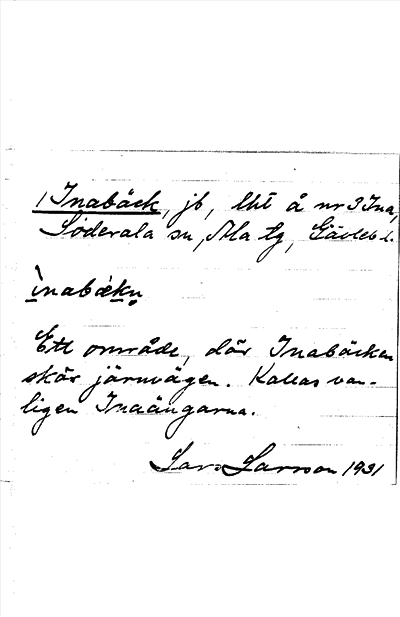 1 Inabäck, jb, lht å nr 3 Ina,
Söderala sn, Ala tg, Gävleb l.
ìnabäkn
Ett område, där Inabäcken
skär järnvägen. Kallas van-
ligen Inaängarna.
Lars Larsson 1931